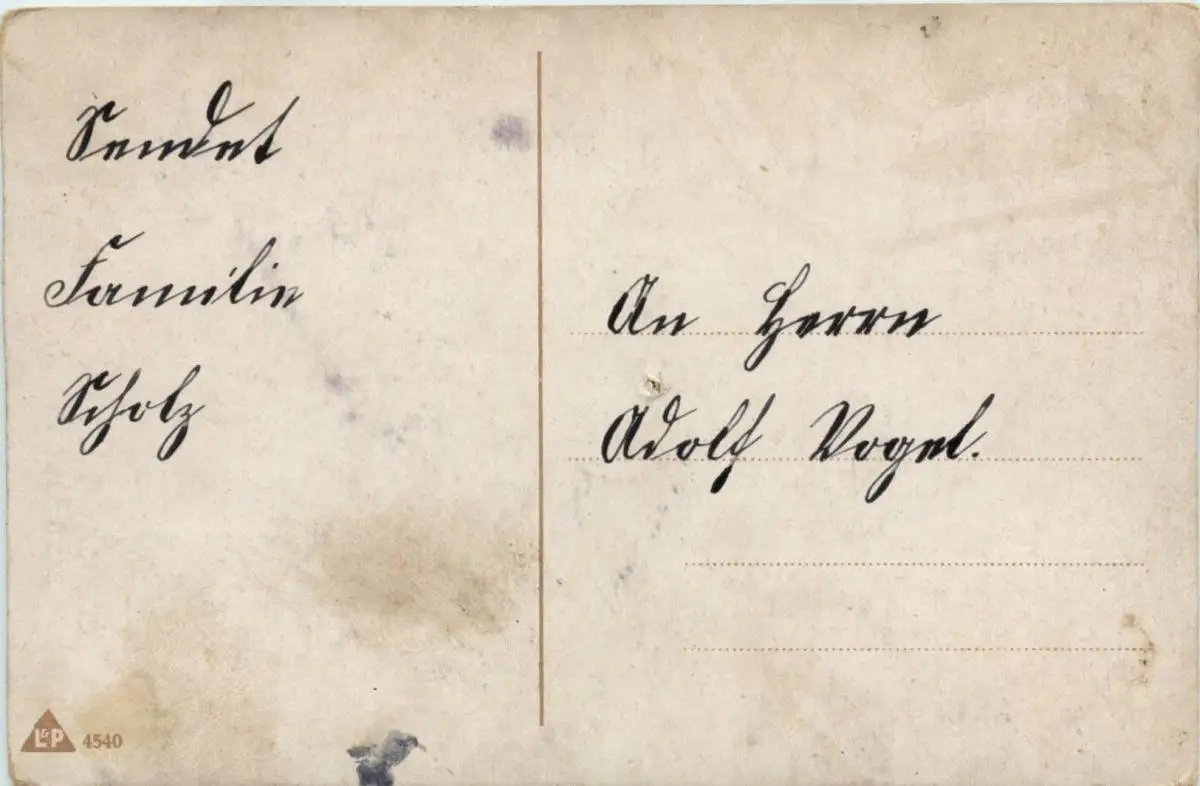 Sendet
Familie
Scholz
An Herrn
Adolf Vogel.
L&P 4540